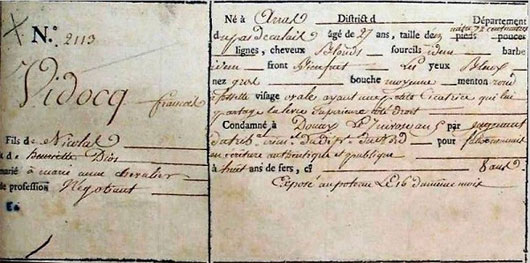 N.º 2113
Vidocq
françois
Fils de Nicolas
& de henriette Dion
marié à marie anne chevalier
de profession Négociant
Né à Arras District d Département
du pas de calais âgé de 27 ans, taille de un mètre 72 centimètres pieds pouces
lignes, cheveux blonds sourcils idem barbe
idem front Les yeux bleus
nez gros bouche moyenne menton rond
à fossette visage ovale ayant une petite Cicatrice qui lui
partage la lèvre Supérieure côté droit
Condamné à Douay par jugement
du trib. crim. du Nord pour
en écriture authentique & publique
à huit ans de fers, ci 8 ans
Exposé au poteau Le 16 mois